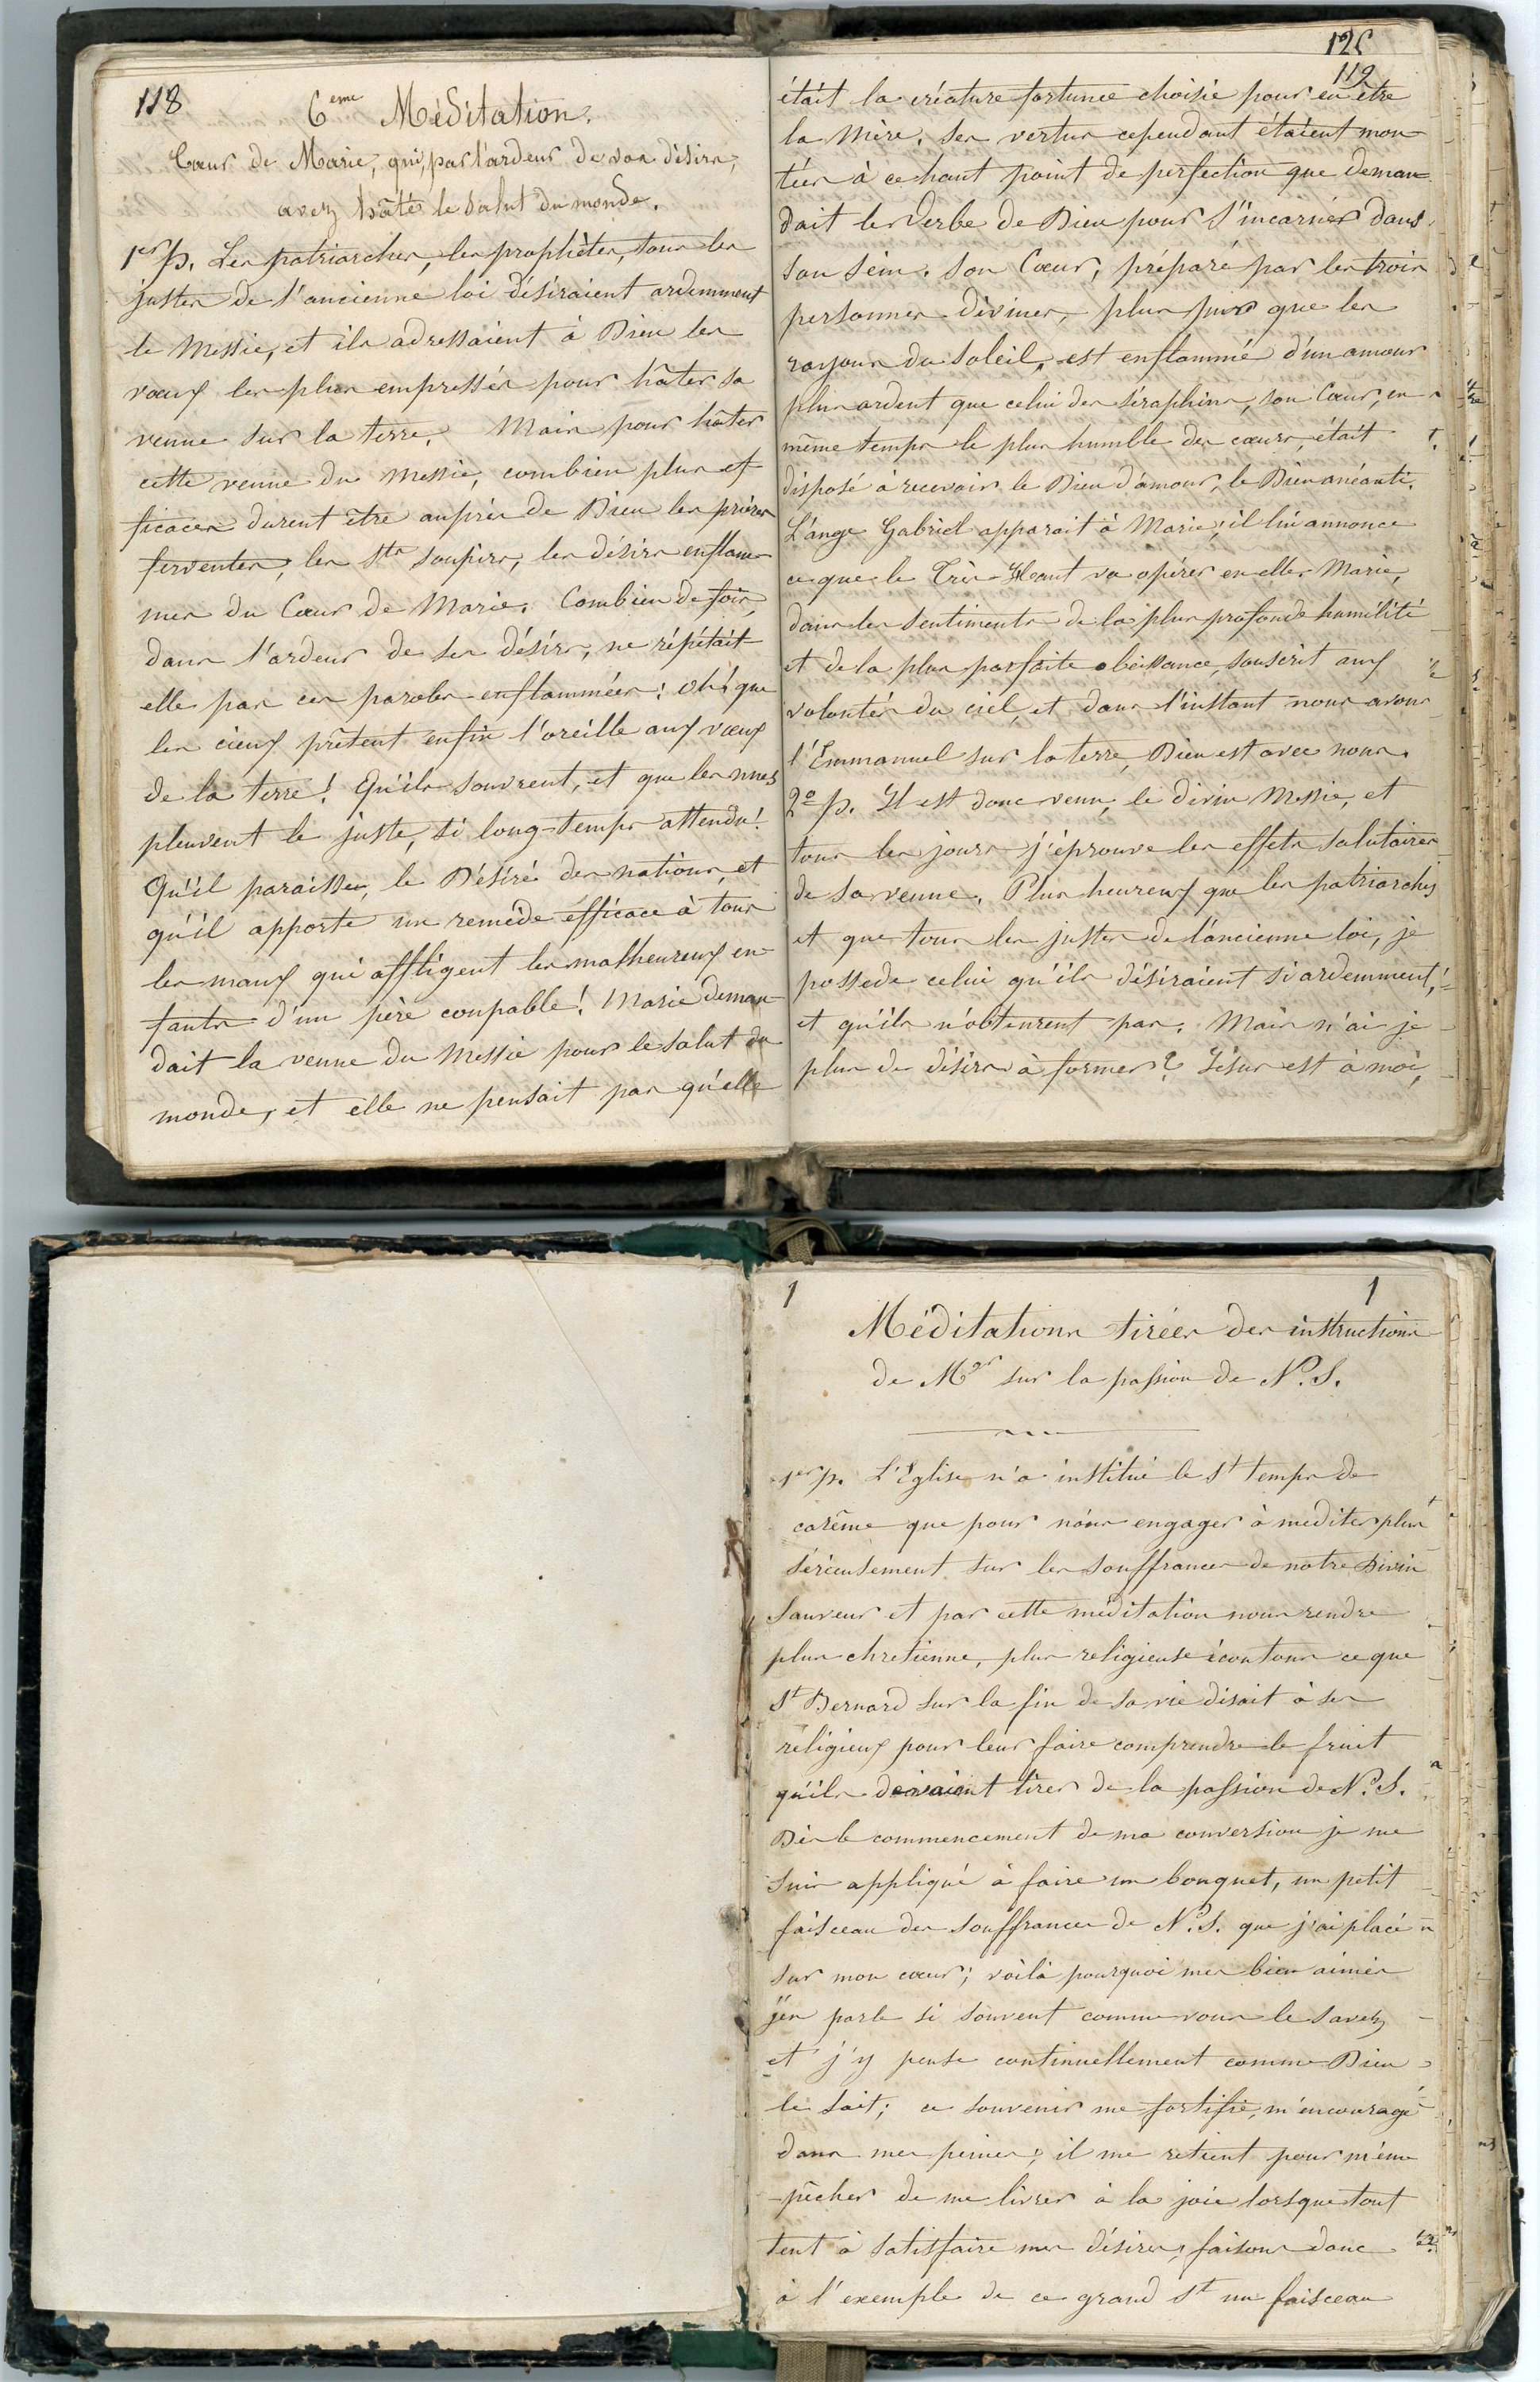 118
6eme Méditation.
Cœur de Marie, qui, par l'ardeur de vos désirs,
avez hâté le salut du monde.
1er p. Les patriarches, les prophètes, tous les
justes de l'ancienne loi désiraient ardemment
le Messie, et ils adressaient à Dieu les
vœux les plus empressés pour hâter sa
venue sur la terre. Mais pour hâter
cette venue du Messie, combien plus ef
ficaces durent être auprès de Dieu les prières
ferventes, les sts soupirs, les désirs enflam
més du Cœur de Marie. Combien de fois,
dans l'ardeur de ses désirs, ne répétait
elle pas ces paroles enflammées: oh! que
les cieux prêtent enfin l'oreille aux vœux
de la terre! Qu'ils s'ouvrent, et que les nues
pleuvent le juste, si long-temps attendu!
Qu'il paraisse, le Désiré des nations, et
qu'il apporte un remède efficace à tous
les maux qui affligent les malheureux en
fants d'un père coupable! Marie deman
dait la venue du Messie pour le salut du
monde, et elle ne pensait pas qu'elle
125
119
était la créature fortunée choisie pour en être
la Mère. Ses vertus cependant étaient mon
tées à ce haut point de perfection que deman
dait le Verbe de Dieu pour s'incarner dans
son sein. Son Cœur, préparé par les trois
personnes divines, plus pur que les
rayons du soleil, est enflammé d'un amour
plus ardent que celui des séraphins, son Cœur, en
même temps le plus humble des cœurs, était
disposé à recevoir le Dieu d'amour, le Dieu anéanti.
L'ange Gabriel apparait à Marie; il lui annonce
ce que le Très-Haut va opérer en elle. Marie,
dans les sentiments de la plus profonde humilité
et de la plus parfaite obéissance, souscrit aux
volontés du ciel, et dans l'instant nous avons
l'Emmanuel sur la terre, Dieu est avec nous.
2o p. Il est donc venu, le divin Messie, et
tous les jours j'éprouve les effets salutaires
de sa venue. Plus heureux que les patriarches
et que tous les justes de l'ancienne loi, je
possede celui qu'ils désiraient si ardemment,
et qu'ils n'obtenrent pas. Mais n'ai je
plus de désirs à former? Jésus est à moi,
1
1
Méditations tirées des instructions
de Mgr sur la passion de N. S.
1er p. L'Eglise n'a institué le St temps de
carême que pour nous engager à mediter plus
sérieusement sur les souffrances de notre Divin
Sauveur et par cette méditation nous rendre
plus chretienne, plus religieuse écoutons ce que
St Bernard sur la fin de sa vie disait à ses
réligieux pour leur faire comprendre le fruit
qu'ils devaient tirer de la passion de N. S.
Dès le commencement de ma conversion je me
suis appliqué à faire un bouquet, un petit
faisceau des souffrances de N. S. que j'ai placé
sur mon cœur; voilà pourquoi mes bien aimés
j'en parle si souvent comme vous le savez
et j'y pense continuellement comme Dieu
le sait; ce souvenir me fortifie, m'encourage
dans mes peines, il me retient pour m'em
pêcher de me livrer à la joie lorsque tout
tent à satisfaire mes désires, faisons donc
à l'exemple de ce grand St un faisceau